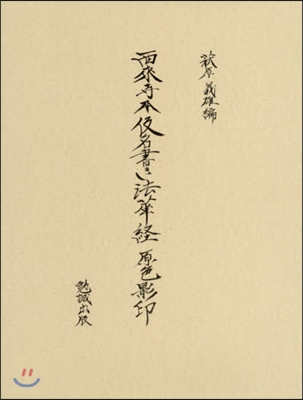 萩原義雄編
西来寺本仮名書き法華経 原色影印
勉誠出版
yes24